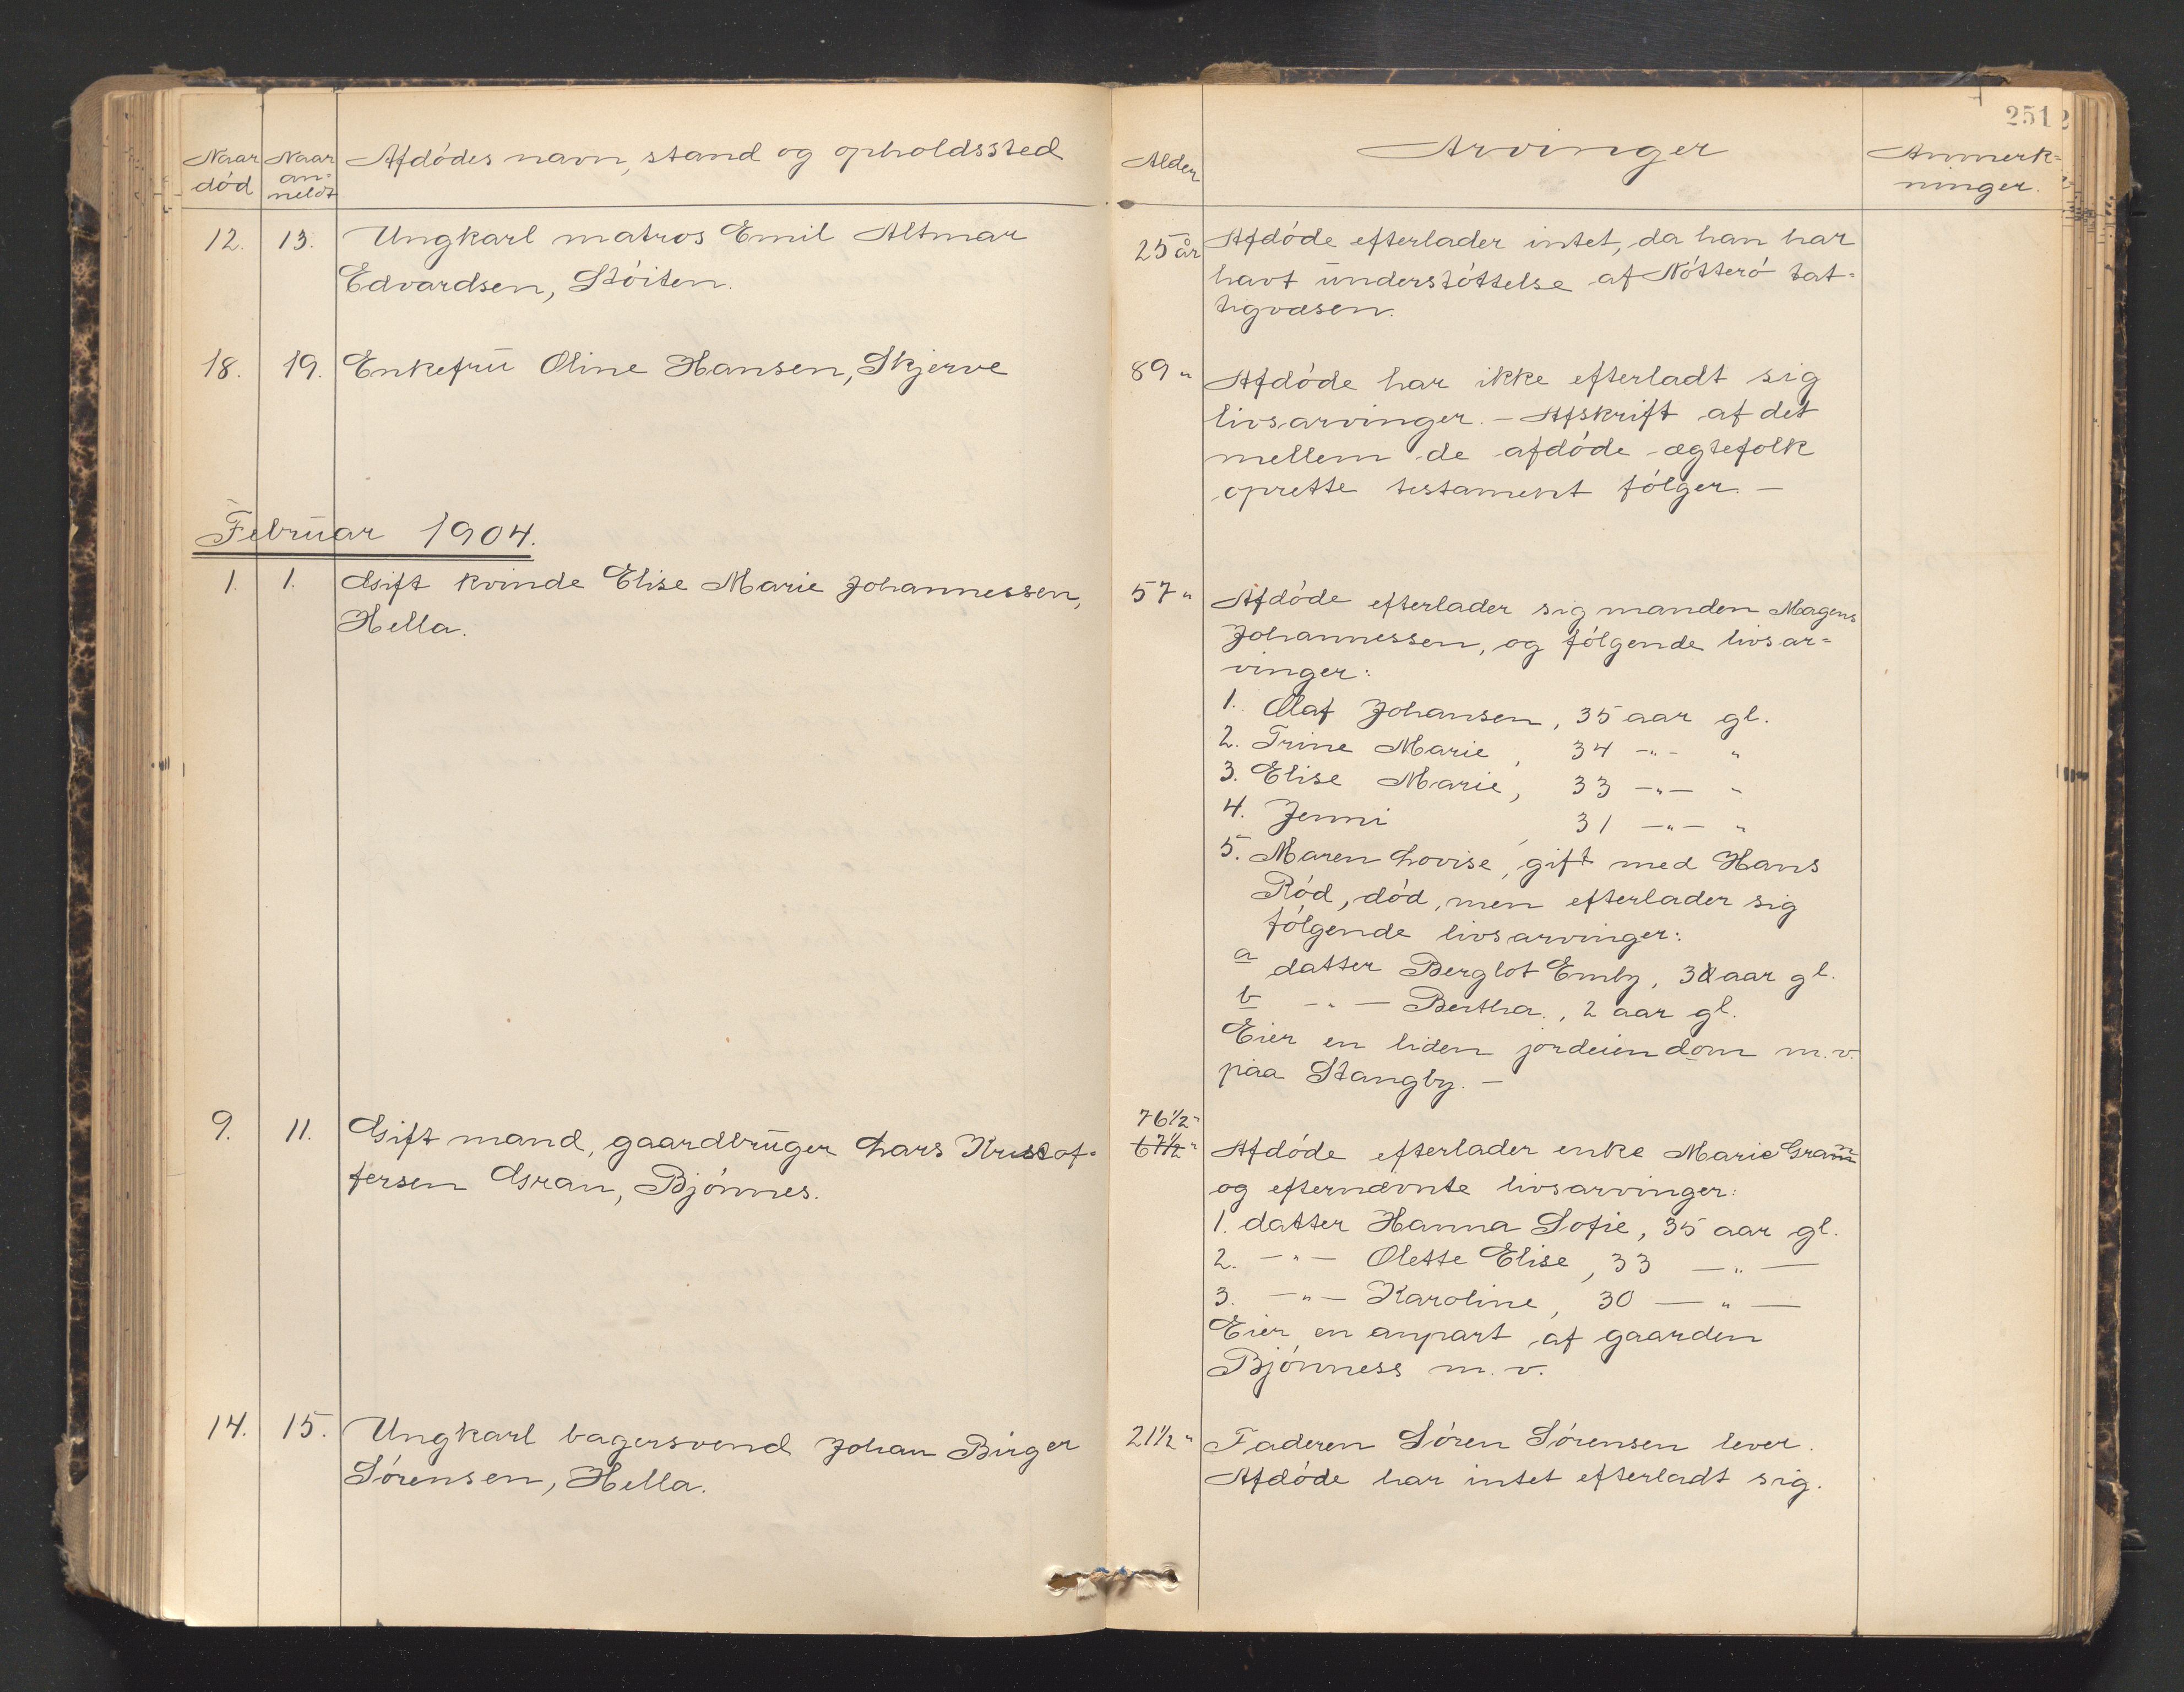 251
Naar død
Naar an= meldt
Afdødes navn, stand og opholdssted
Alder
Arvinger
Anmerk= ninger.
12. 13. Ungkarl matros Emil Altmar
Edvardsen, Støiten.
25 år
Afdøde efterlader intet, da han har
havt understøttelse af Nøtterø fat=
tigvæsen.
18. 19. Enkefru Oline Hansen, Skjerve
89 "
Afdøde har ikke efterladt sig
livsarvinger. – Afskrift af det
mellem de afdøde ægtefolk
oprette testament følger. –
Februar 1904.
1. 1. Gift kvinde Elise Marie Johannessen,
Hella.
57 "
Afdøde efterlader sig manden Magens
Johannessen, og følgende livsar=
vinger:
1. Olaf Johansen, 35 aar gl.
2. Trine Marie, 34 –"– "
3. Elise Marie, 33 –"– "
4. Jenni, 31 –"– "
5. Maren Lovise, gift med Hans
Rød, død, men efterlader sig
følgende livsarvinger:
a datter Berglot Emly, 3 aar gl.
b –"– Bertha., 2 aar gl.
Eier en liden jordeiendom m.v.
paa Stangby. –
9. 11. Gift mand, gaardbruger Lars Kristof=
fersen Gran, Bjønnes.
76 1/2 "
67 1/2 "
Afdøde efterlader enke Marie Gran
og efternævnte livsarvinger:
1. datter Hanna Sofie, 35 aar gl.
2. –"– Olette Elise, 33 –"–
3. –"– Karoline, 30 –"–
Eier en anpart af gaarden
Bjønness m.v.
14. 15. Ungkarl bagersvend Johan Birger
Sørensen, Hella.
21 1/2 "
Faderen Søren Sørensen lever.
Afdøde har intet efterladt sig.